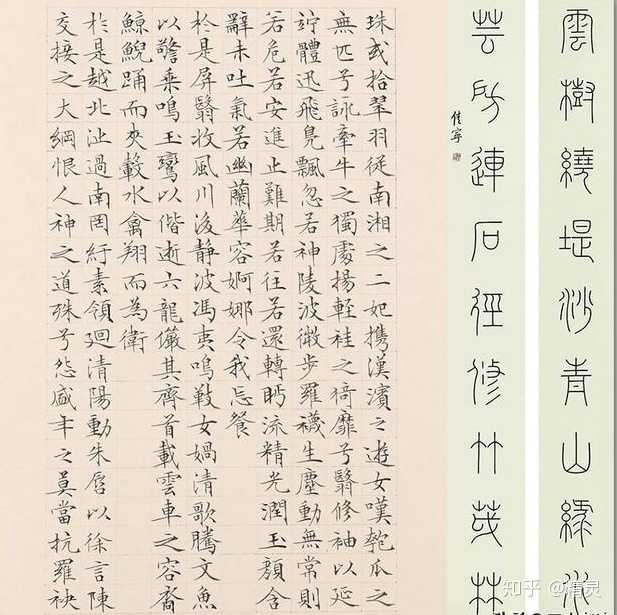 雲樹繞堤沙青山綠水
芸房連石徑修竹茂林
佳寧
珠或拾翠羽從南湘之二妃攜漢濱之遊女嘆匏瓜之
無匹兮詠牽牛之獨處揚輕袿之猗靡兮翳修袖以延
竚體迅飛鳧飄忽若神陵波微步羅襪生塵動無常則
若危若安進止難期若往若還轉眄流精光潤玉顏含
辭未吐氣若幽蘭華容婀娜令我忘餐
於是屏翳收風川後靜波馮夷鳴鼓女媧清歌騰文魚
以警乘鳴玉鸞以偕逝六龍儼其齊首載雲車之容裔
鯨鯢踊而夾轂水禽翔而為衛
於是越北沚過南岡紆素領迴清陽動朱唇以徐言陳
交接之大綱恨人神之道殊兮怨盛年之莫當抗羅袂
知乎